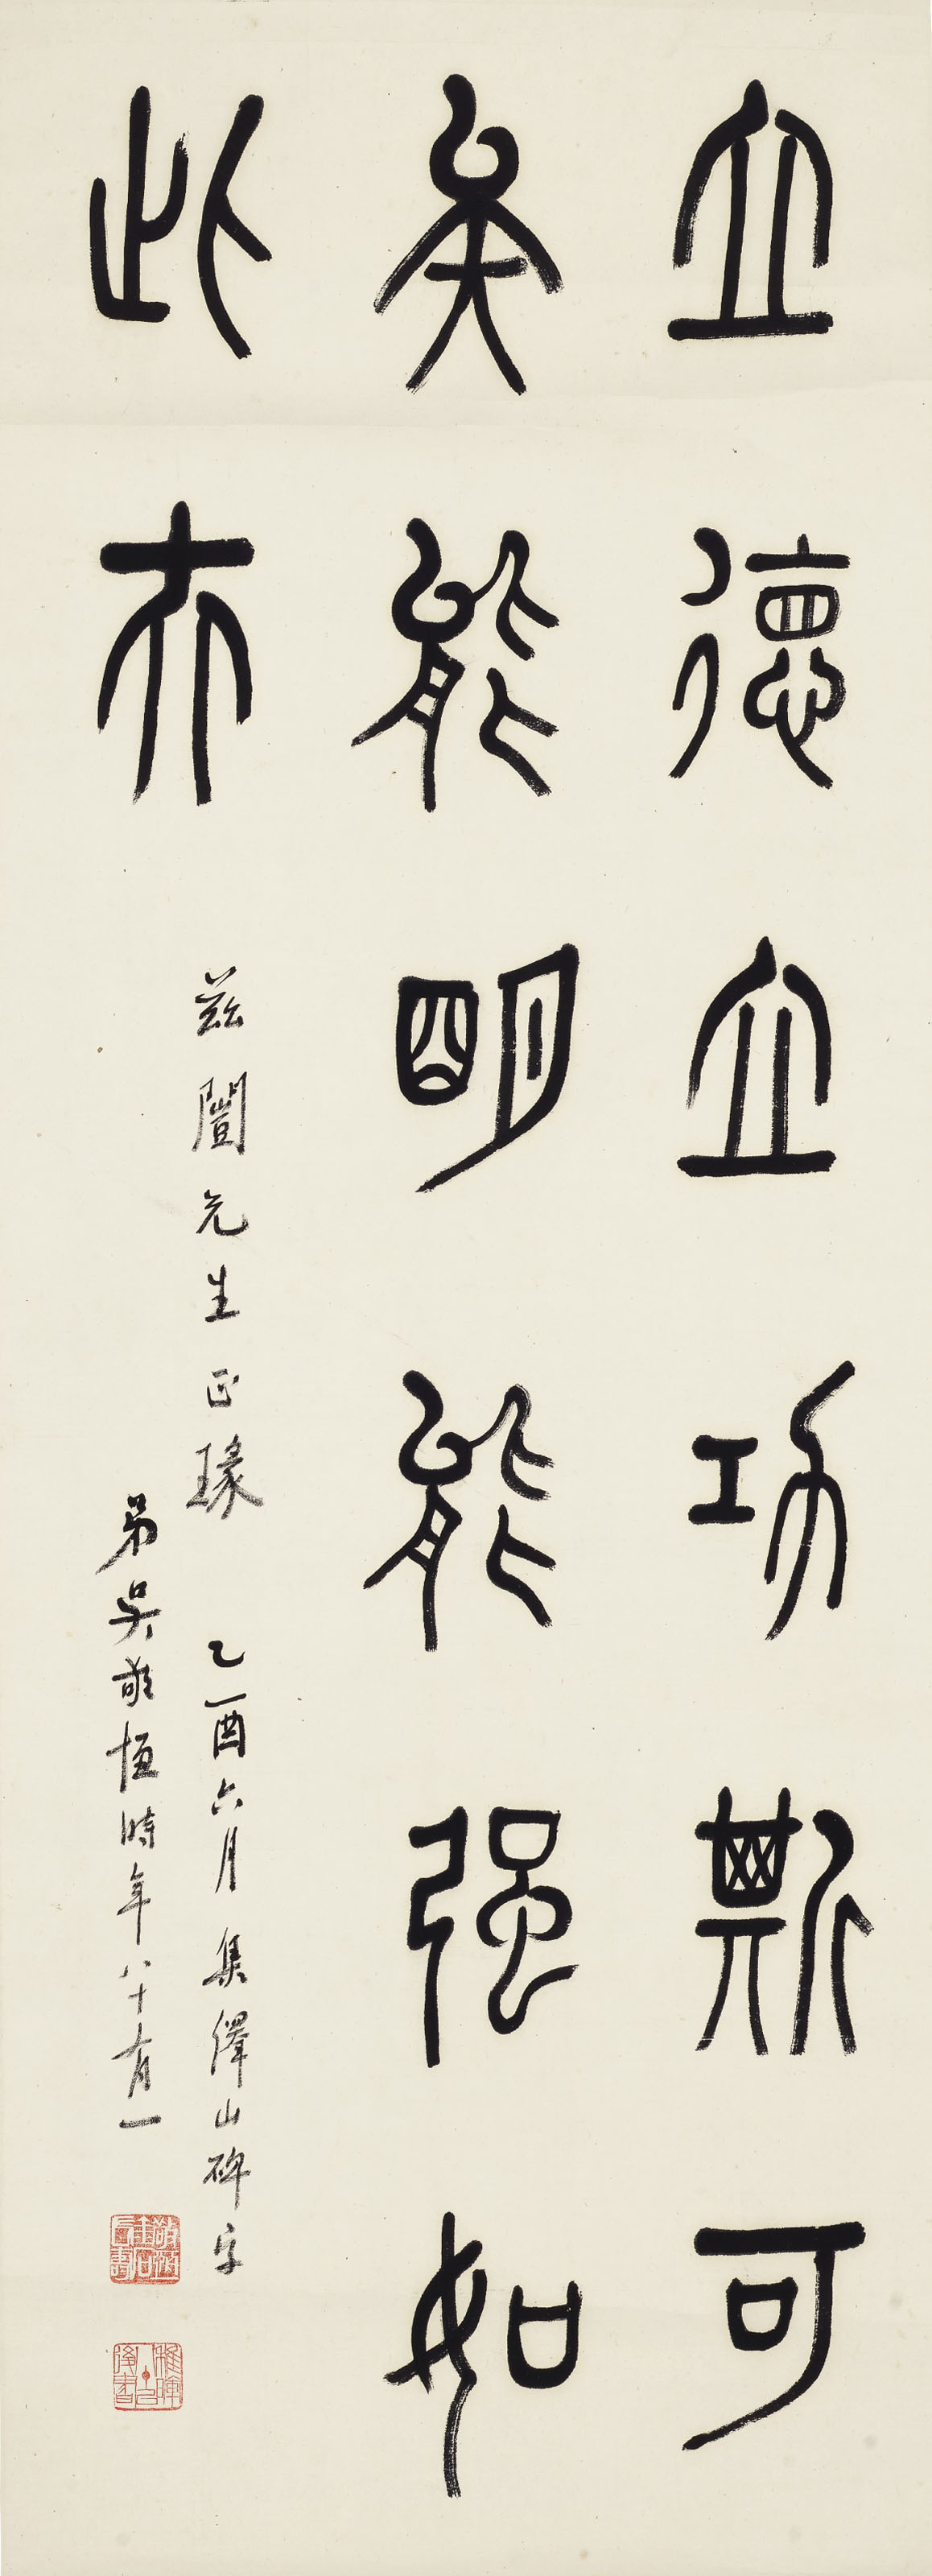 立德立功斯可
矣能明能强如
此夫
茲闓先生正瑑
乙酉六月集繹山碑字
弟吳敬恆時年八十有一